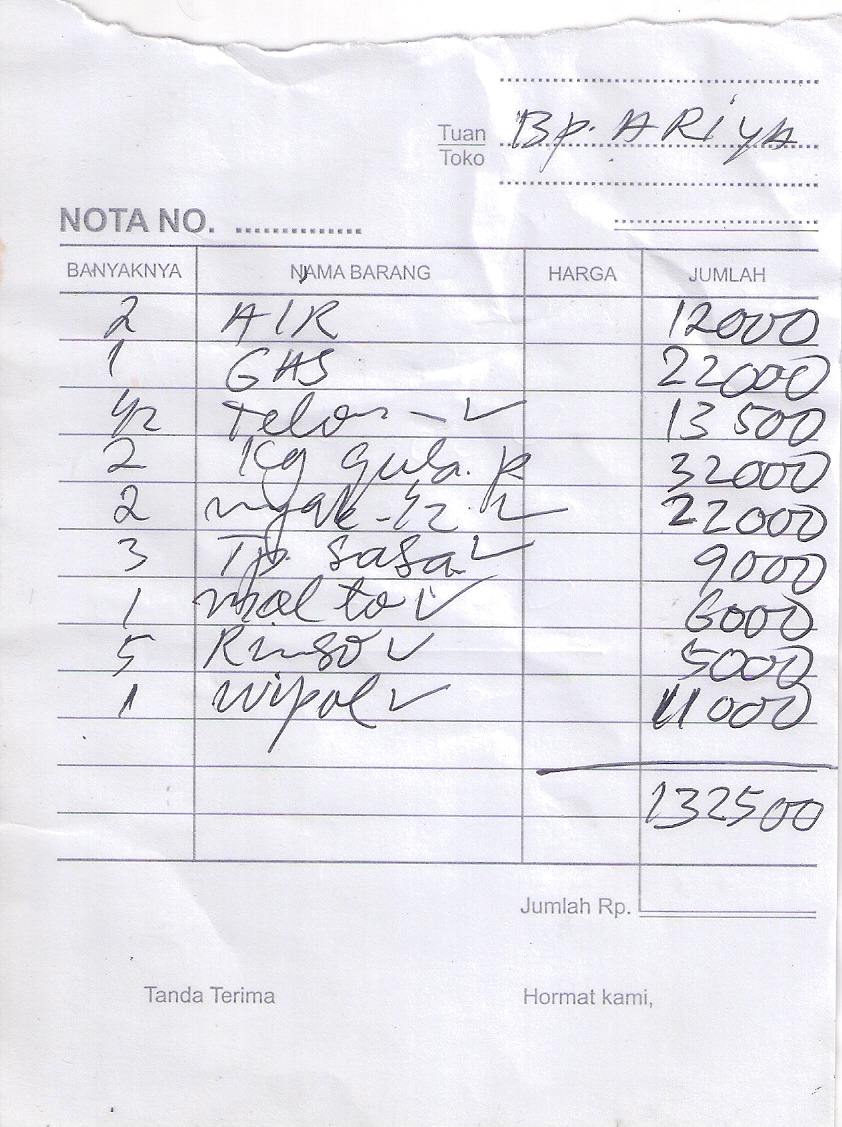 Tuan Bp. ARiYA
Toko
NOTA NO. ..............
BANYAKNYA NAMA BARANG HARGA JUMLAH
2 AIR 12000
1 GAS 22000
1/2 Telor - ✓ 13500
2 Kg gula. P 32000
2 mnyak - 1/2 ✓ 22000
3 Tp. sasa ✓ 9000
1 molto ✓ 6000
5 Rinso ✓ 5000
1 wipol ✓ 11000
132500
Jumlah Rp.
Tanda Terima Hormat kami,